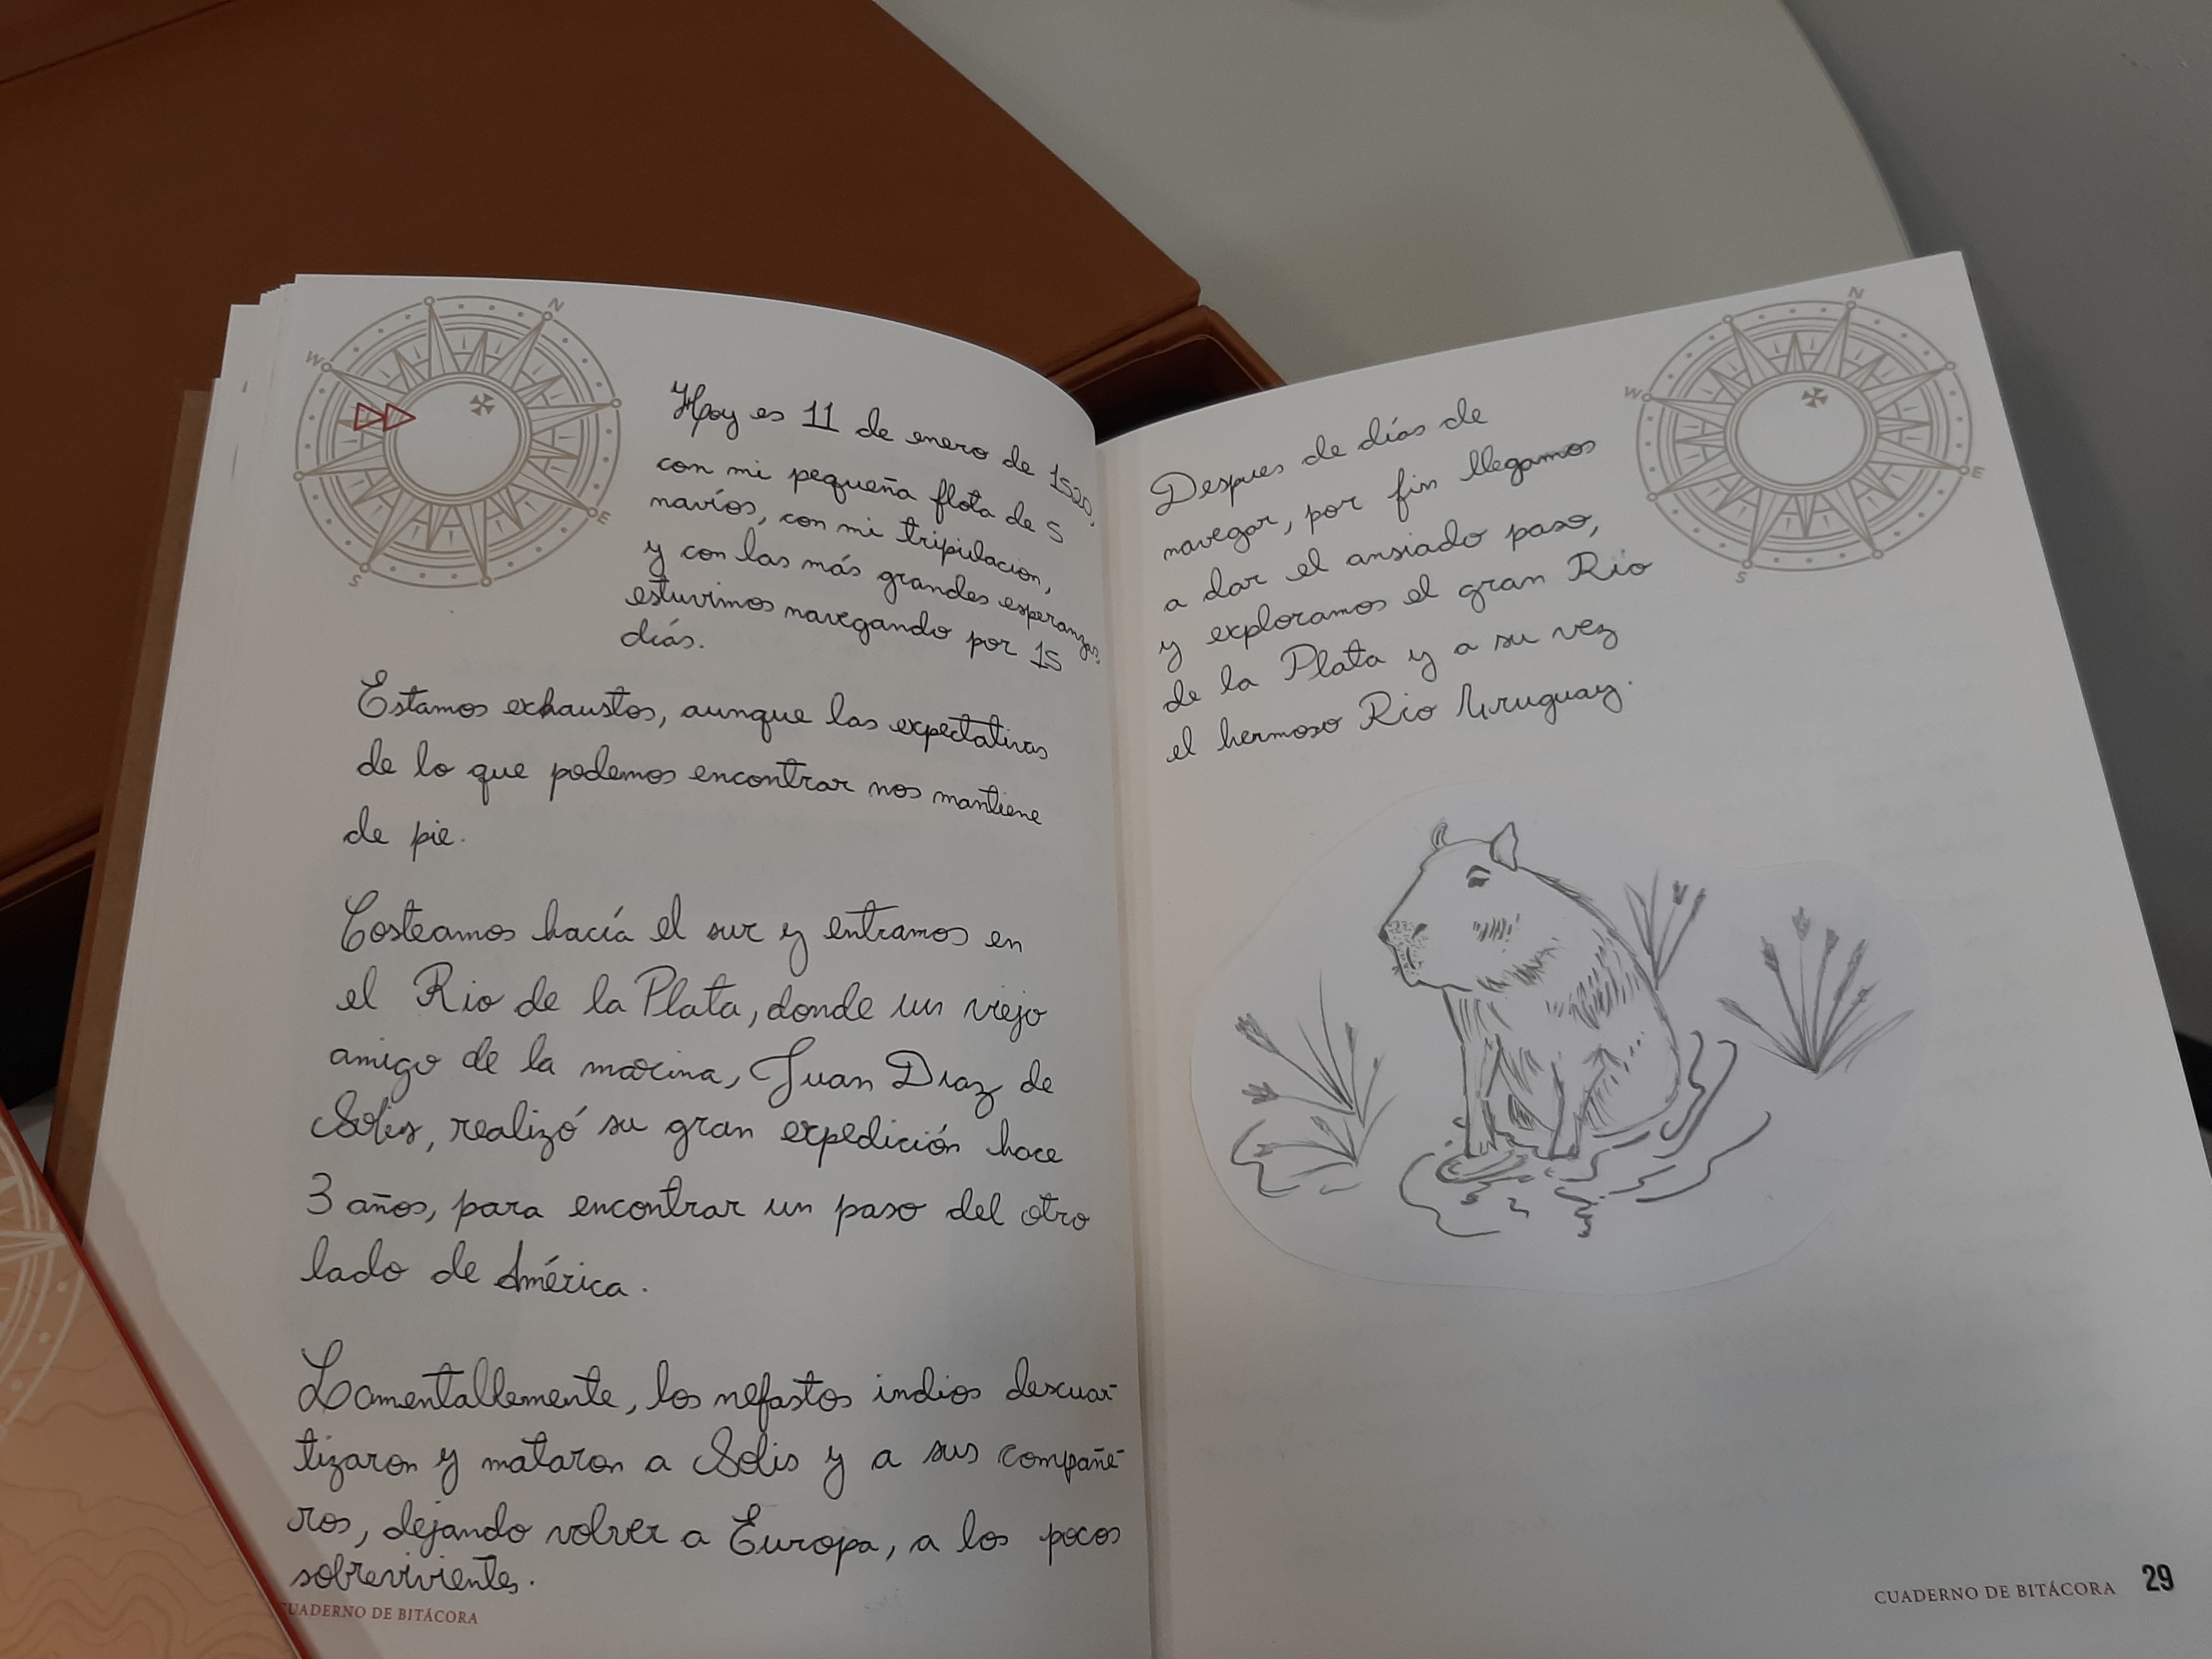 N
W
E
S
Hoy es 11 de enero de 1520,
con mi pequeña flota de 5
navíos, con mi tripulacion,
y con las más grandes esperanzas,
estuvimos navegando por 15
diás.
Estamos exhaustos, aunque las expectativas
de lo que podemos encontrar nos mantiene
de pie.
Costeamos hacía el sur y entramos en
el Rio de la Plata, donde un viejo
amigo de la marina, Juan Diaz de
Solis, realizó su gran expedición hace
3 años, para encontrar un paso del otro
lado de América.
Lamentablemente, los nefastos indios descuar-
tizaron y mataron a Solis y a sus compañe-
ros, dejando volver a Europa, a los pocos
sobrevivientes.
CUADERNO DE BITÁCORA
N
W
E
S
Despues de días de
navegar, por fin llegamos
a dar el ansiado paso,
y exploramos el gran Rio
de la Plata y a su vez
el hermoso Rio Uruguay.
CUADERNO DE BITÁCORA 29